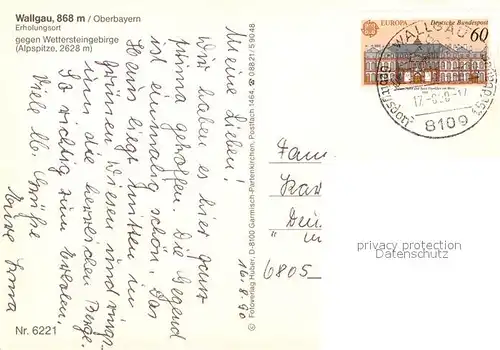 Wallgau, 868 m / Oberbayern
Erholungsort
gegen Wettersteingebirge
(Alpspitze, 2628 m)
Nr. 6221
© Fotoverlag Huber, D-8100 Garmisch-Partenkirchen, Postfach 1464, ☎ 08821/59048
16.8.90
Meine Lieben!
Wir haben es hier ganz
prima getroffen. Die Gegend
ist einmalig schön. Das
Haus liegt mitten in
grünen Wiesen und rings-
um die herrlichen Berge.
So richtig zum Erholen.
Viele lb. Grüße
Eure Irma
EUROPA Deutsche Bundespost
60
WALLGAU
17.-8.90-17
8109
Fam
6805
privacy protection
Datenschutz